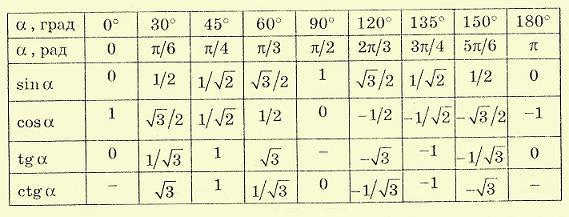 α, град 0° 30° 45° 60° 90° 120° 135° 150° 180°
α, рад 0 π/6 π/4 π/3 π/2 2π/3 3π/4 5π/6 π
sin α 0 1/2 1/√2 √3/2 1 √3/2 1/√2 1/2 0
cos α 1 √3/2 1/√2 1/2 0 −1/2 −1/√2 −√3/2 −1
tg α 0 1/√3 1 √3 − −√3 −1 −1/√3 0
ctg α − √3 1 1/√3 0 −1/√3 −1 −√3 −